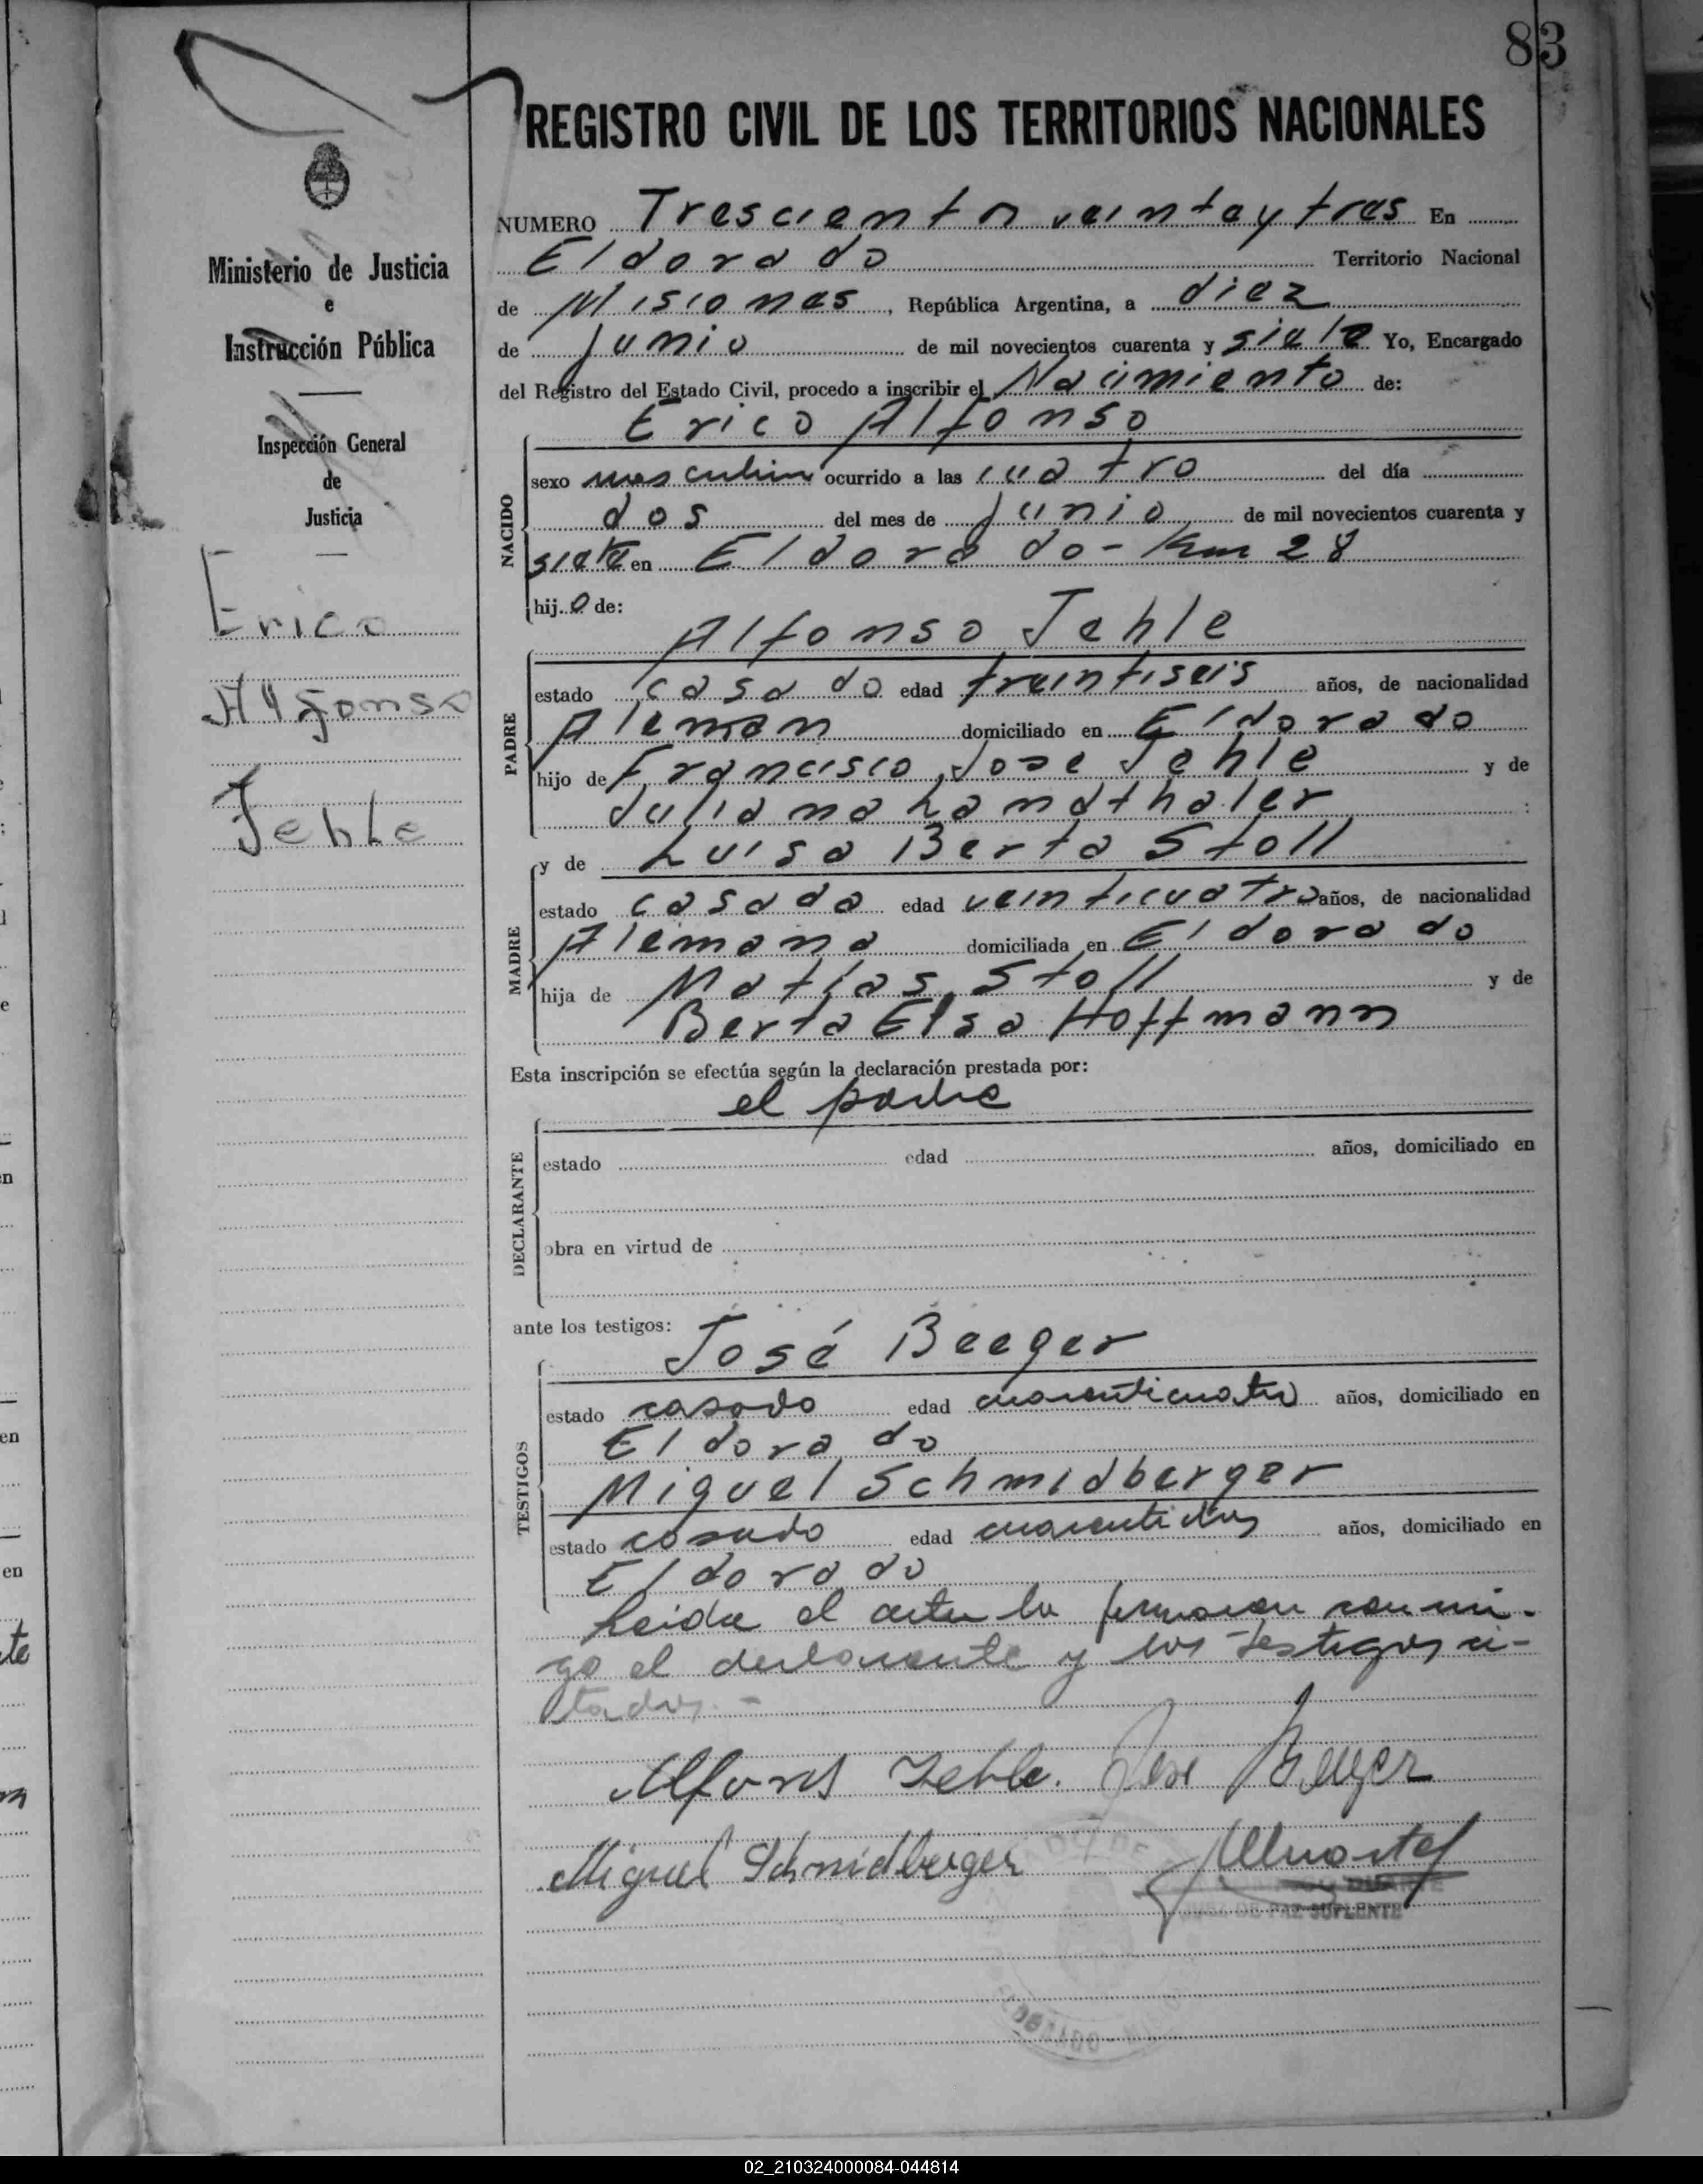 83
REGISTRO CIVIL DE LOS TERRITORIOS NACIONALES
Ministerio de Justicia
e
Instrucción Pública
Inspección General
de
Justicia
Erico
Alfonso
Jehle
NUMERO Trescientos veinte y tres En
Eldorado Territorio Nacional
de Misiones, República Argentina, a diez
de junio de mil novecientos cuarenta y siete Yo, Encargado
del Registro del Estado Civil, procedo a inscribir el Nacimiento de:
Erico Alfonso
NACIDO
sexo masculino ocurrido a las cuatro del día
dos del mes de junio de mil novecientos cuarenta y
siete en Eldorado - Km 28
hijo de:
Alfonso Jehle
PADRE
estado casado edad treintiseis años, de nacionalidad
Aleman domiciliado en Eldorado
hijo de Francisco Jose Jehle y de
Juliana Landthaler
y de Luisa Berta Stoll
MADRE
estado casada edad veinticuatro años, de nacionalidad
Alemana domiciliada en Eldorado
hija de Matías Stoll y de
Berta Elsa Hoffmann
Esta inscripción se efectúa según la declaración prestada por:
el padre
DECLARANTE
estado edad años, domiciliado en
obra en virtud de
ante los testigos:
José Beeger
TESTIGOS
estado casado edad cuarenticuatro años, domiciliado en
Eldorado
Miguel Schmidberger
estado casado edad cuarentidos años, domiciliado en
Eldorado
Leida el acta la firmaron conmi-
go el declarante y los testigos ci-
tados.-
Alfons Jehle. Jose Beeger
Miguel Schmidberger
DUARTE
JUEZ DE PAZ SUPLENTE
ELDORADO
02_210324000084-044814